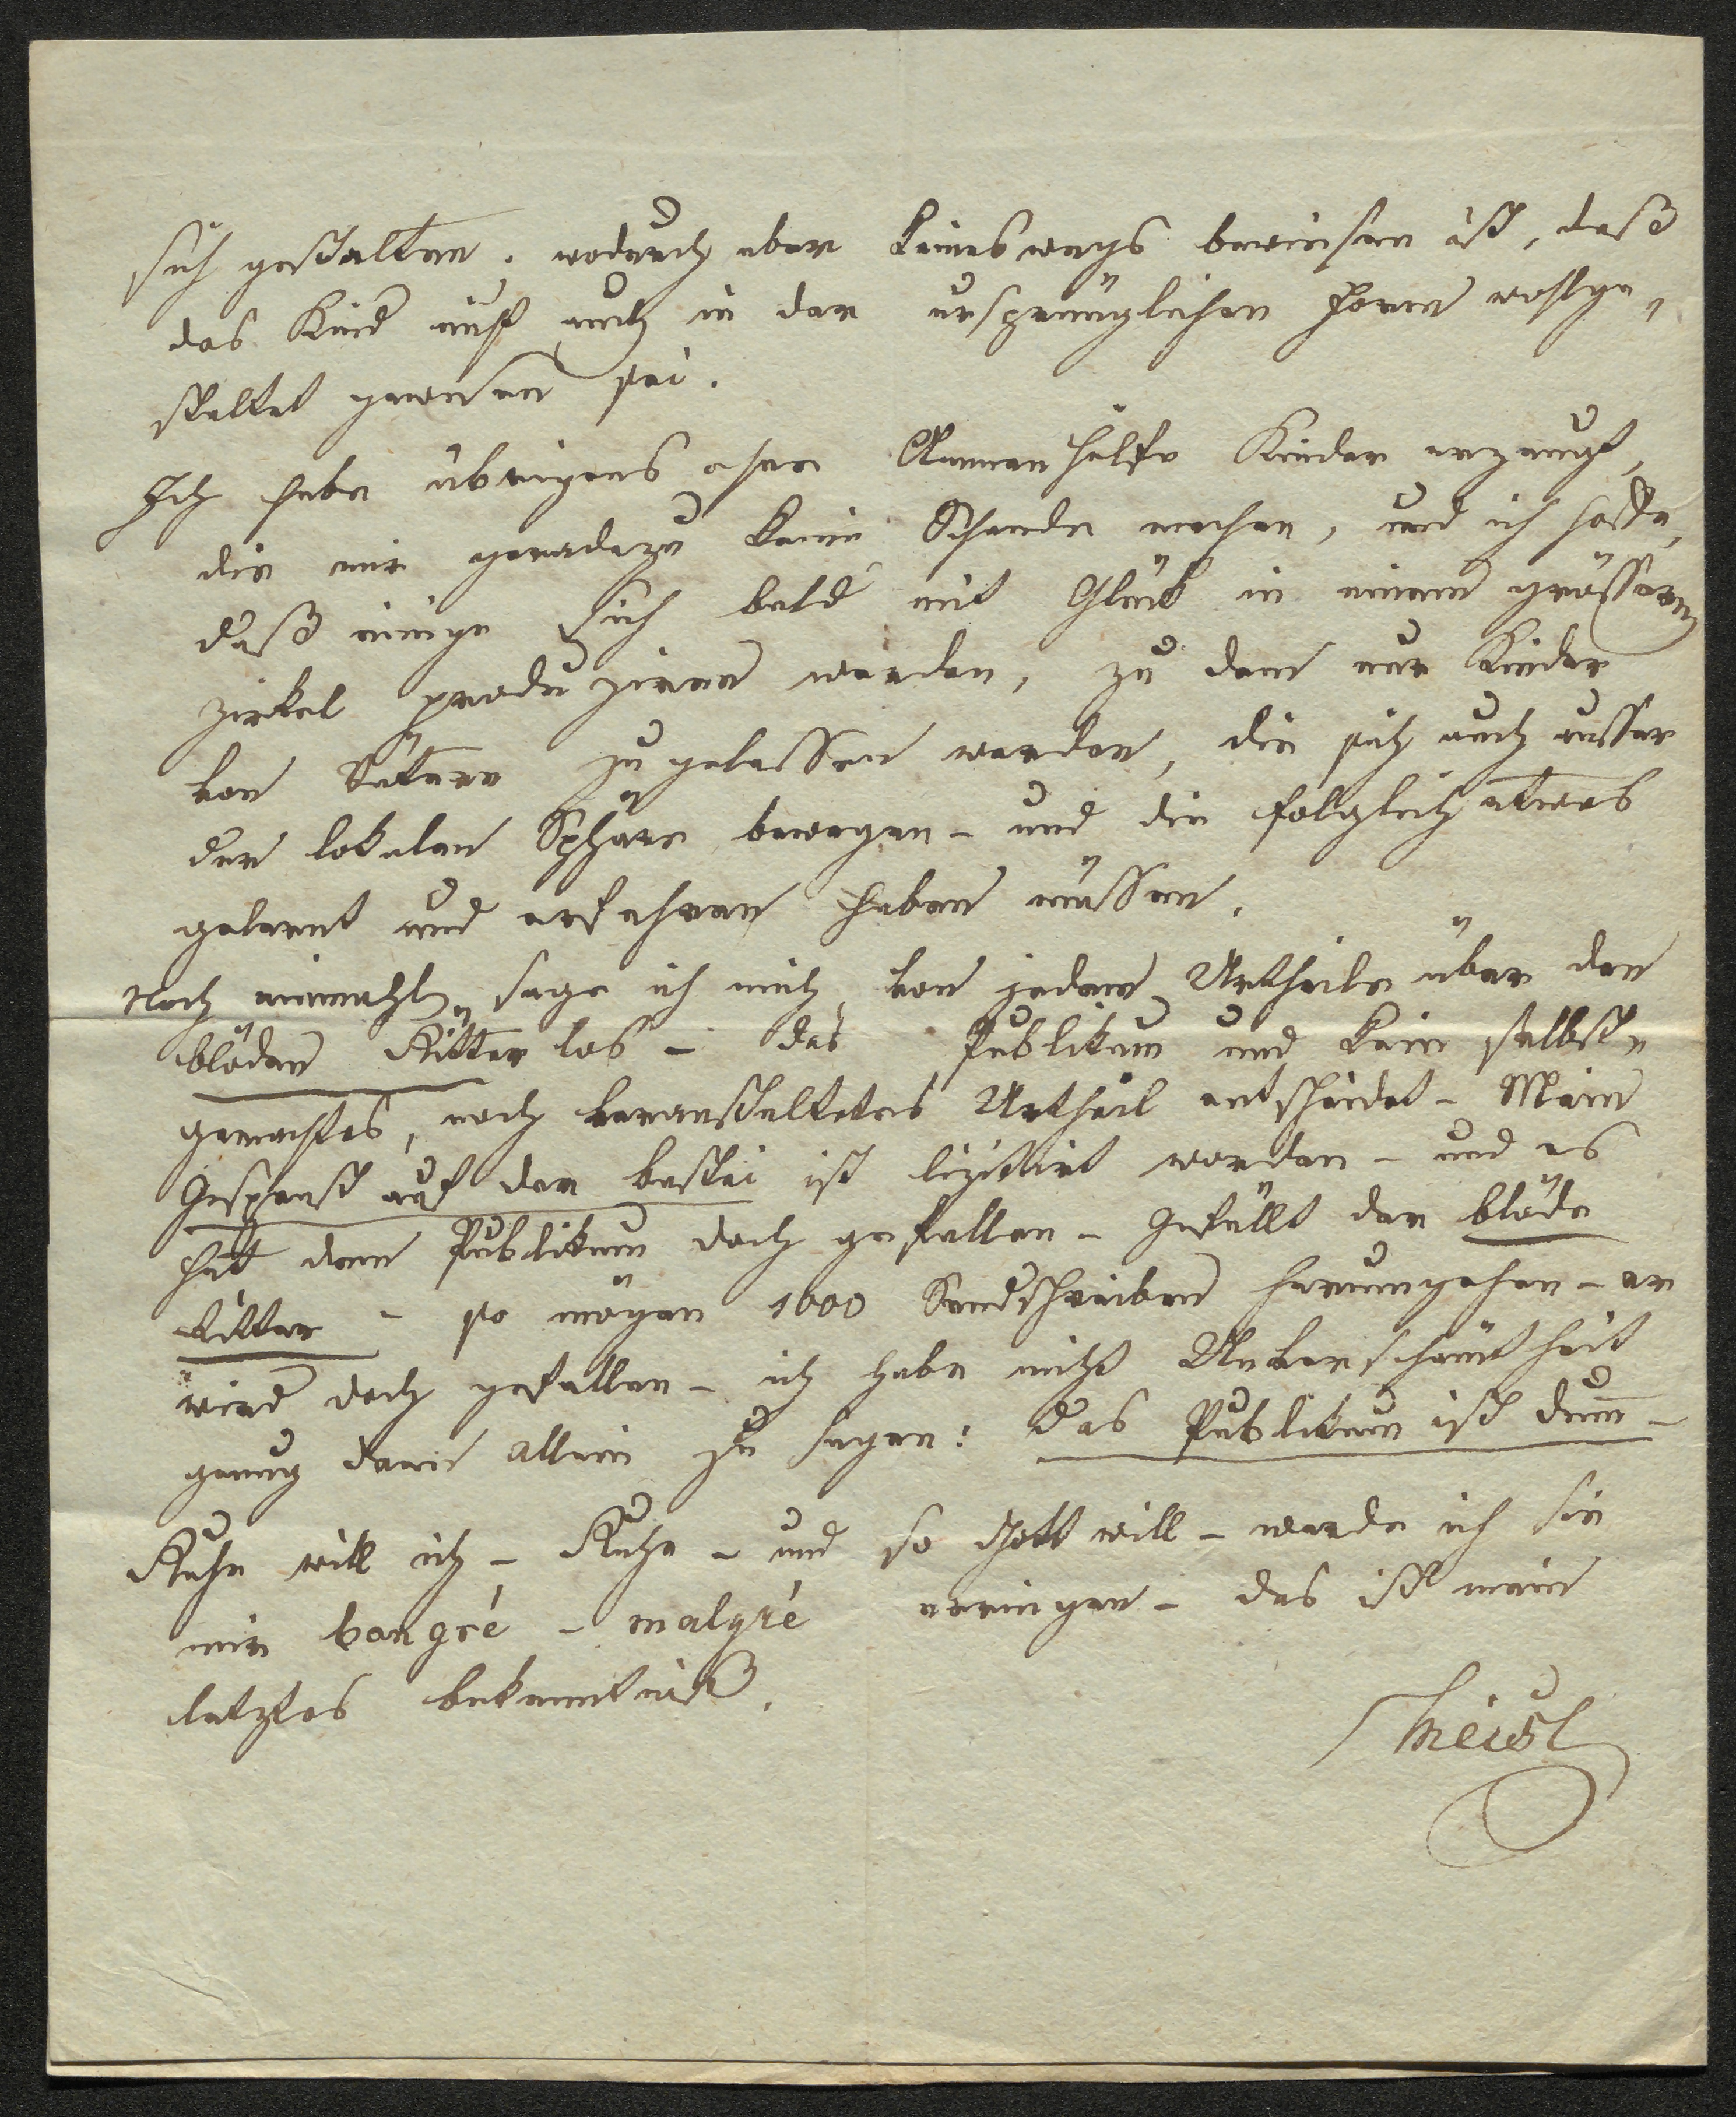 sich gestalten, wodurch aber keineswegs bewiesen ist, daß
das Kind nicht auch in der ursprünglichen Form wohlge¬
staltet gewesen sei.
Ich habe übrigens ohne Ammenhülfe Kinder erzeugt,
die mir geradezu keine Schande machen, und ich hoffe,
daß einige sich bald mit Glük in einem grösseren
Zirkel produziren werden, zu dem nur Kinder
von Vätern zugelassen werden, die sich auch ausser
der lokalen Sphäre bewegen – und die folglich etwas
gelernt und erfahren haben müssen.
Noch einmahl sage ich mich von jedem Urtheile über den
blöden Ritter los – das Publikum und kein selbst¬
gemachtes, noch veranstaltetes Urtheil entscheidet – Mein
Gespenst auf der Bastei ist lizitirt worden – und es
hat dem Publikum doch gefallen – Gefällt der blöde
Ritter – so mögen 1000 Sendschreiben herumgehen – er
wird doch gefallen – ich habe nicht Unverschämtheit
genug dann allein zu sagen: Das Publikum ist dum̅ –
Ruhe will ich – Ruhe – und so Gott will – werde ich sie
mir bongré – malgré erringen – das ist mein
letztes Bekenntniß.
Meisl